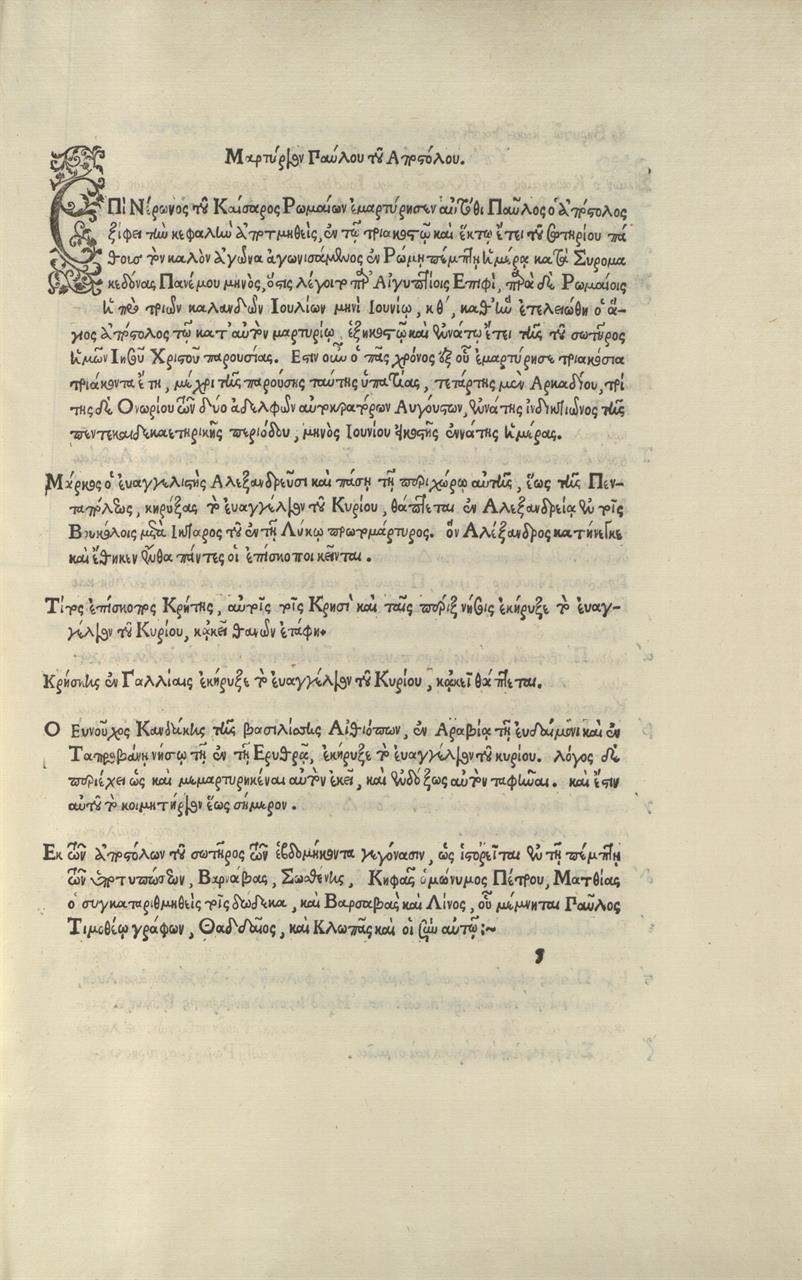 Μαρτύριον Παύλου τοῦ Αποστόλου.
ΕΠΙ Νέρωνος τοῦ Καίσαρος Ρωμαίων ἐμαρτύρησεν αὐτόθι Παῦλος ὁ ἀπόστολος
ξίφει τὴν κεφαλὴν ἀποτμηθεὶς, ἐν τῷ τριακοστῷ καὶ ἕκτῳ ἔτει τοῦ σωτηρίου πά
θους τὸν καλὸν ἀγῶνα ἀγωνισάμενος ἐν Ρώμῃ πέμπτῃ ἡμέρᾳ κατὰ Συρομα
κεδόνας Πανέμου μηνὸς, ὅστις λέγοιτο παρ' Αἰγυπτίοις Επιφὶ, παρὰ δὲ Ρωμαίοις
ἡ πρὸ τριῶν καλανδῶν Ιουλίων μηνὶ Ιουνίῳ, κθ', καθ' ἣν ἐτελειώθη ὁ ἅ-
γιος ἀπόστολος τῷ κατ' αὐτὸν μαρτυρίῳ, ἑξηκοστῷ καὶ ἐννάτῳ ἔτει τῆς τοῦ σωτῆρος
ἡμῶν Ιησοῦ Χριστοῦ παρουσίας. Εστιν οὖν ὁ πᾶς χρόνος ἐξ οὗ ἐμαρτύρησε τριακόσια
τριάκοντα ἔτη, μέχρι τῆς παρούσης ταύτης ὑπατίας, τετάρτης μὲν Αρκαδίου, τρί
της δὲ Ονωρίου τῶν δύο ἀδελφῶν αὐτοκρατόρων Αυγούστων, ἐννάτης ἰνδικτιῶνος τῆς
πεντεκαιδεκαετηρικῆς περιόδου, μηνὸς Ιουνίου εἰκοστῆς ἐννάτης ἡμέρας.
Μάρκος ὁ ἐυαγγελιστὴς Αλεξανδρεῦσι καὶ πάσῃ τῇ περιχώρῳ αὐτῆς, ἕως τῆς Πεν-
ταπόλεως, κηρύξας τὸ ἐυαγγέλιον τοῦ Κυρίου, θάπτεται ἐν Αλεξανδρείᾳ ἐν τοῖς
Βουκόλοις μετὰ τοῦ ἐν τῇ Λύκῳ πρωτομάρτυρος. ὃν Αλέξανδρος κατήνεγκε
καὶ ἔθηκεν ἔνθα πάντες οἱ ἐπίσκοποι κεῖνται.
Τίτος ἐπίσκοπος Κρήτης, αὐτοῖς τοῖς Κρησὶ καὶ ταῖς πέριξ νήσοις ἐκήρυξε τὸ ἐυαγ-
γέλιον τοῦ Κυρίου, κἀκεῖ θανὼν ἐτάφη.
Κρήσκης ἐν Γαλλίαις ἐκήρυξε τὸ ἐυαγγέλιον τοῦ Κυρίου, κἀκεῖ θάπτεται.
Ο Ευνοῦχος Κανδάκης τῆς βασιλίσσης Αἰθιόπων, ἐν Αραβίᾳ τῇ ἐυδαίμονι καὶ ἐν
Ταπροβάνῃ νήσῳ τῇ ἐν τῇ Ερυθρᾷ, ἐκήρυξε τὸ ἐυαγγέλιον τοῦ κυρίου. λόγος δὲ
περιέχει ὡς καὶ μεμαρτυρηκέναι αὐτὸν ἐκεῖ, καὶ ἐνδόξως αὐτὸν ταφῆναι. καὶ ἔστιν
αὐτοῦ τὸ κοιμητήριον ἕως σήμερον.
Εκ τῶν ἀποστόλων τοῦ σωτῆρος τῶν ἑβδομήκοντα γεγόνασιν, ὡς ἱστορεῖται ἐν τῇ πέμπτῃ
τῶν ὑποτυπώσεων, Βαρνάβας, Σωσθένης, Κηφᾶς ὁμώνυμος Πέτρου, Ματθίας
ὁ συγκαταριθμηθεὶς τοῖς δώδεκα, καὶ Βαρσαβᾶς καὶ Λίνος, οὗ μέμνηται Παῦλος
Τιμοθέῳ γράφων, Θαδδαῖος, καὶ Κλωπᾶς καὶ οἱ σὺν αὐτῷ:~